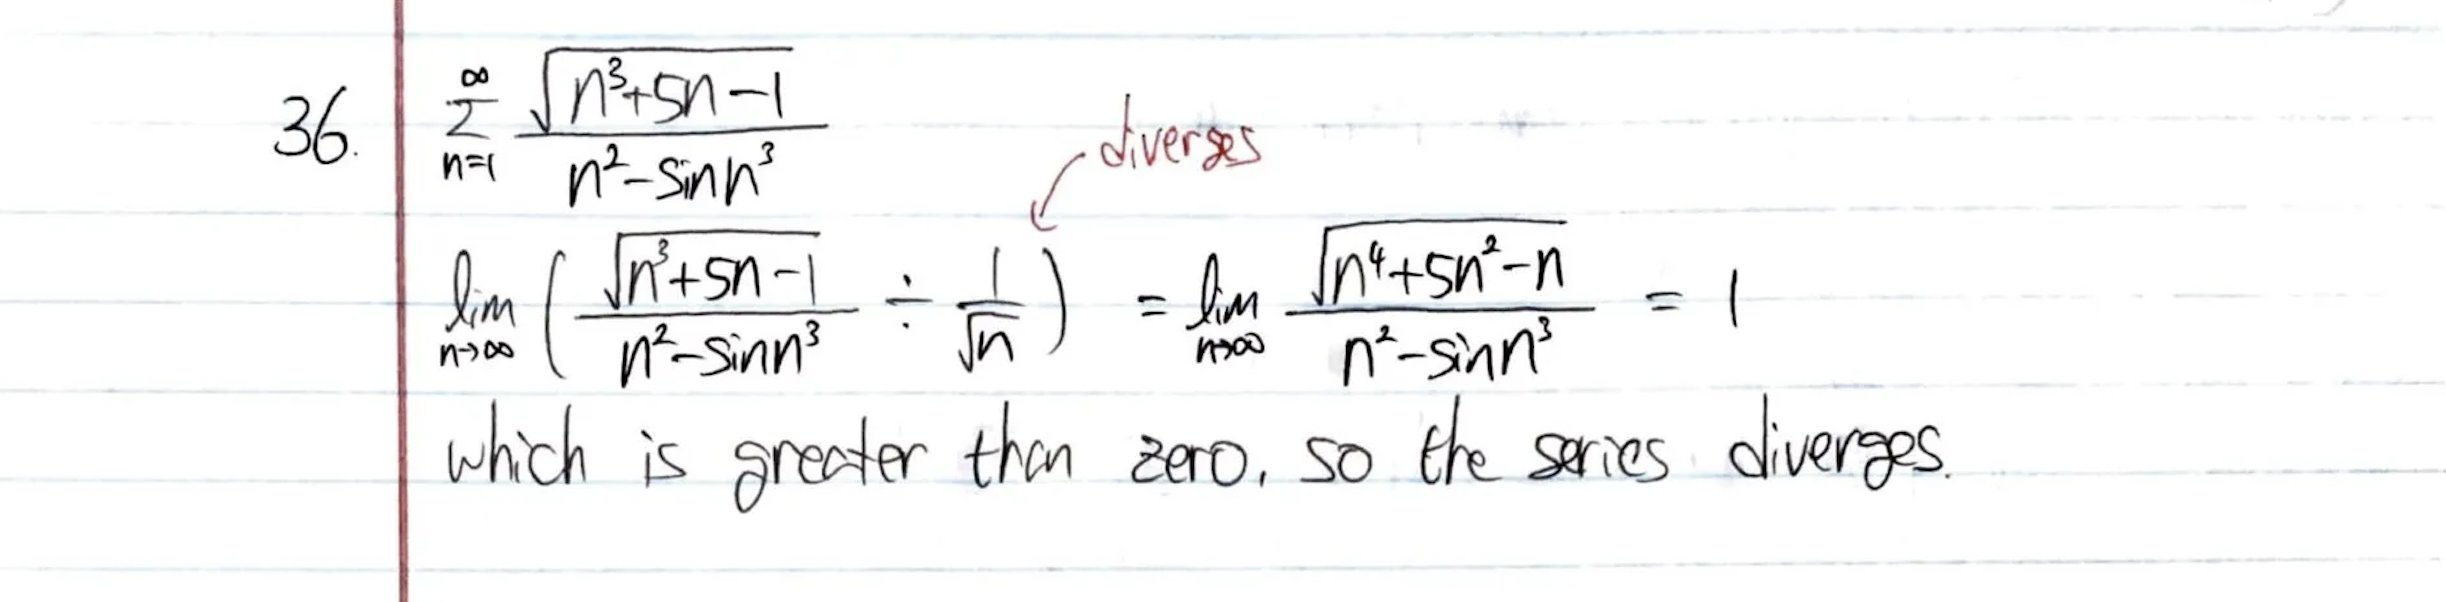 36. ∞Σn=1 √(n³+5n-1) / (n²-sinn³)
diverges
lim n→∞ ( √(n³+5n-1) / (n²-sinn³) ÷ 1/√n ) = lim n→∞ √(n⁴+5n²-n) / (n²-sinn³) = 1
which is greater than zero, so the series diverges.